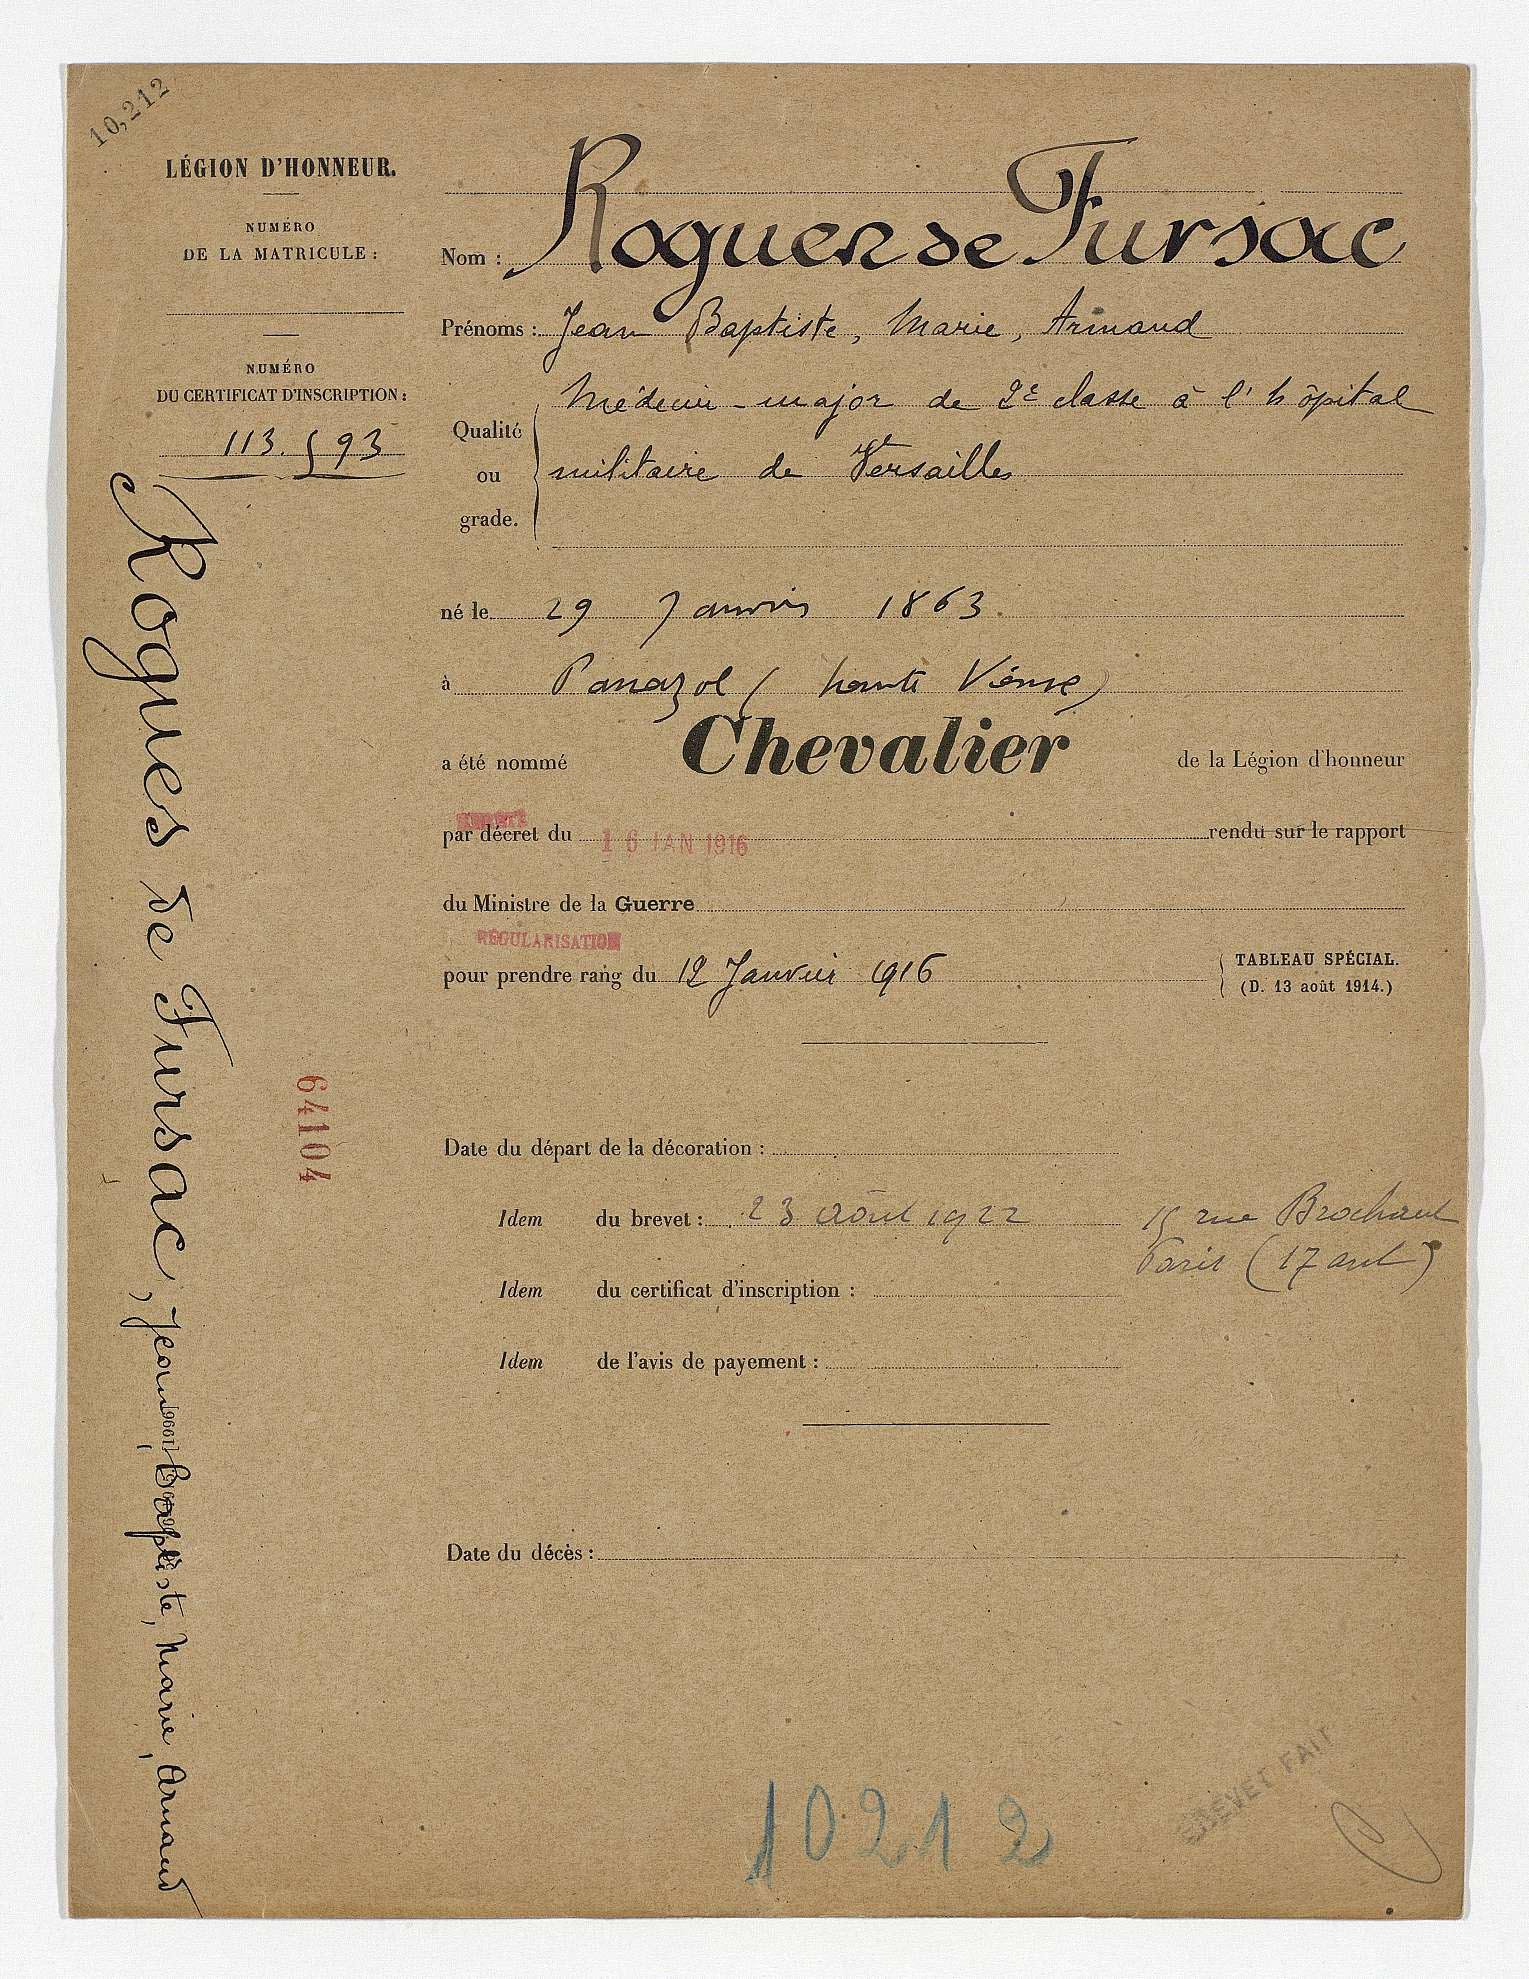 10,212
LÉGION D'HONNEUR.
NUMÉRO
DE LA MATRICULE :
NUMÉRO
DU CERTIFICAT D'INSCRIPTION :
113.593
Rogues de Fursac, Jean, Baptiste, Marie, Armand
64104
Nom : Rogues de Fursac
Prénoms : Jean Baptiste, Marie, Armand
Qualité ou grade. Médecin-major de 2e classe à l'hôpital
militaire de Versailles
né le 29 Janvier 1863.
à Panazol (haute Vienne)
a été nommé Chevalier de la Légion d'honneur
par décret du 16 JAN 1916 rendu sur le rapport
du Ministre de la Guerre
RÉGULARISATION
pour prendre rang du 12 Janvier 1916
TABLEAU SPÉCIAL.
(D. 13 août 1914.)
Date du départ de la décoration :
Idem du brevet : 23 août 1922
15 rue Brochant
Paris (17 arrt)
Idem du certificat d'inscription :
Idem de l'avis de payement :
Date du décès :
BREVET FAIT
10212